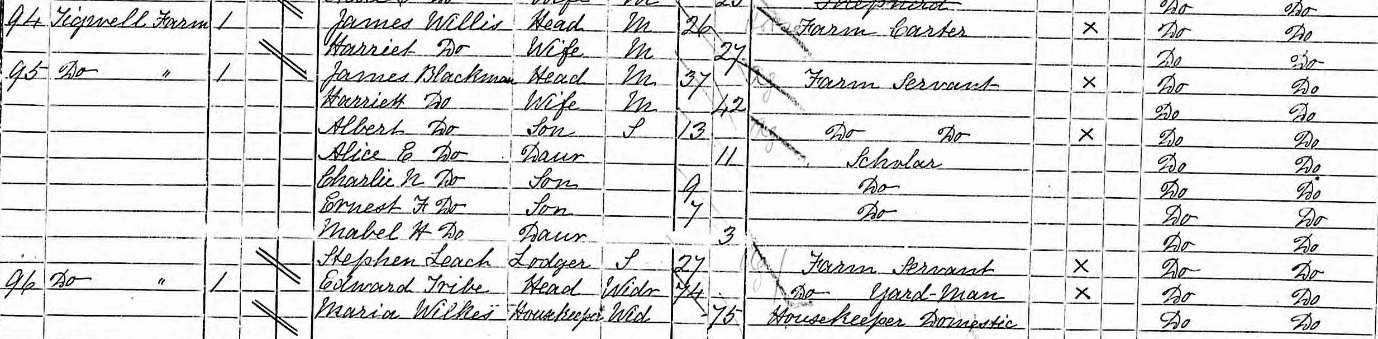 Shepherd Do Do
94 Tigwell Farm 1 James Willis Head M 26 Farm Carter × Do Do
Harriet Do Wife M 27 Do Do
95 Do " 1 James Blackman Head M 37 Farm Servant × Do Do
Harriett Do Wife M 42 Do Do
Albert Do Son S 13 Do Do × Do Do
Alice E Do Daur 11 Scholar Do Do
Charlie N Do Son 9 Do Do Do
Ernest F Do Son 7 Do Do Do
Mabel H Do Daur 3 Do Do
Stephen Leach Lodger S 27 Farm Servant × Do Do
96 Do " 1 Edward Tribe Head Widr 74 Do Yard-Man × Do Do
Maria Wilkes Housekeeper Wid 75 Housekeeper Domestic Do Do